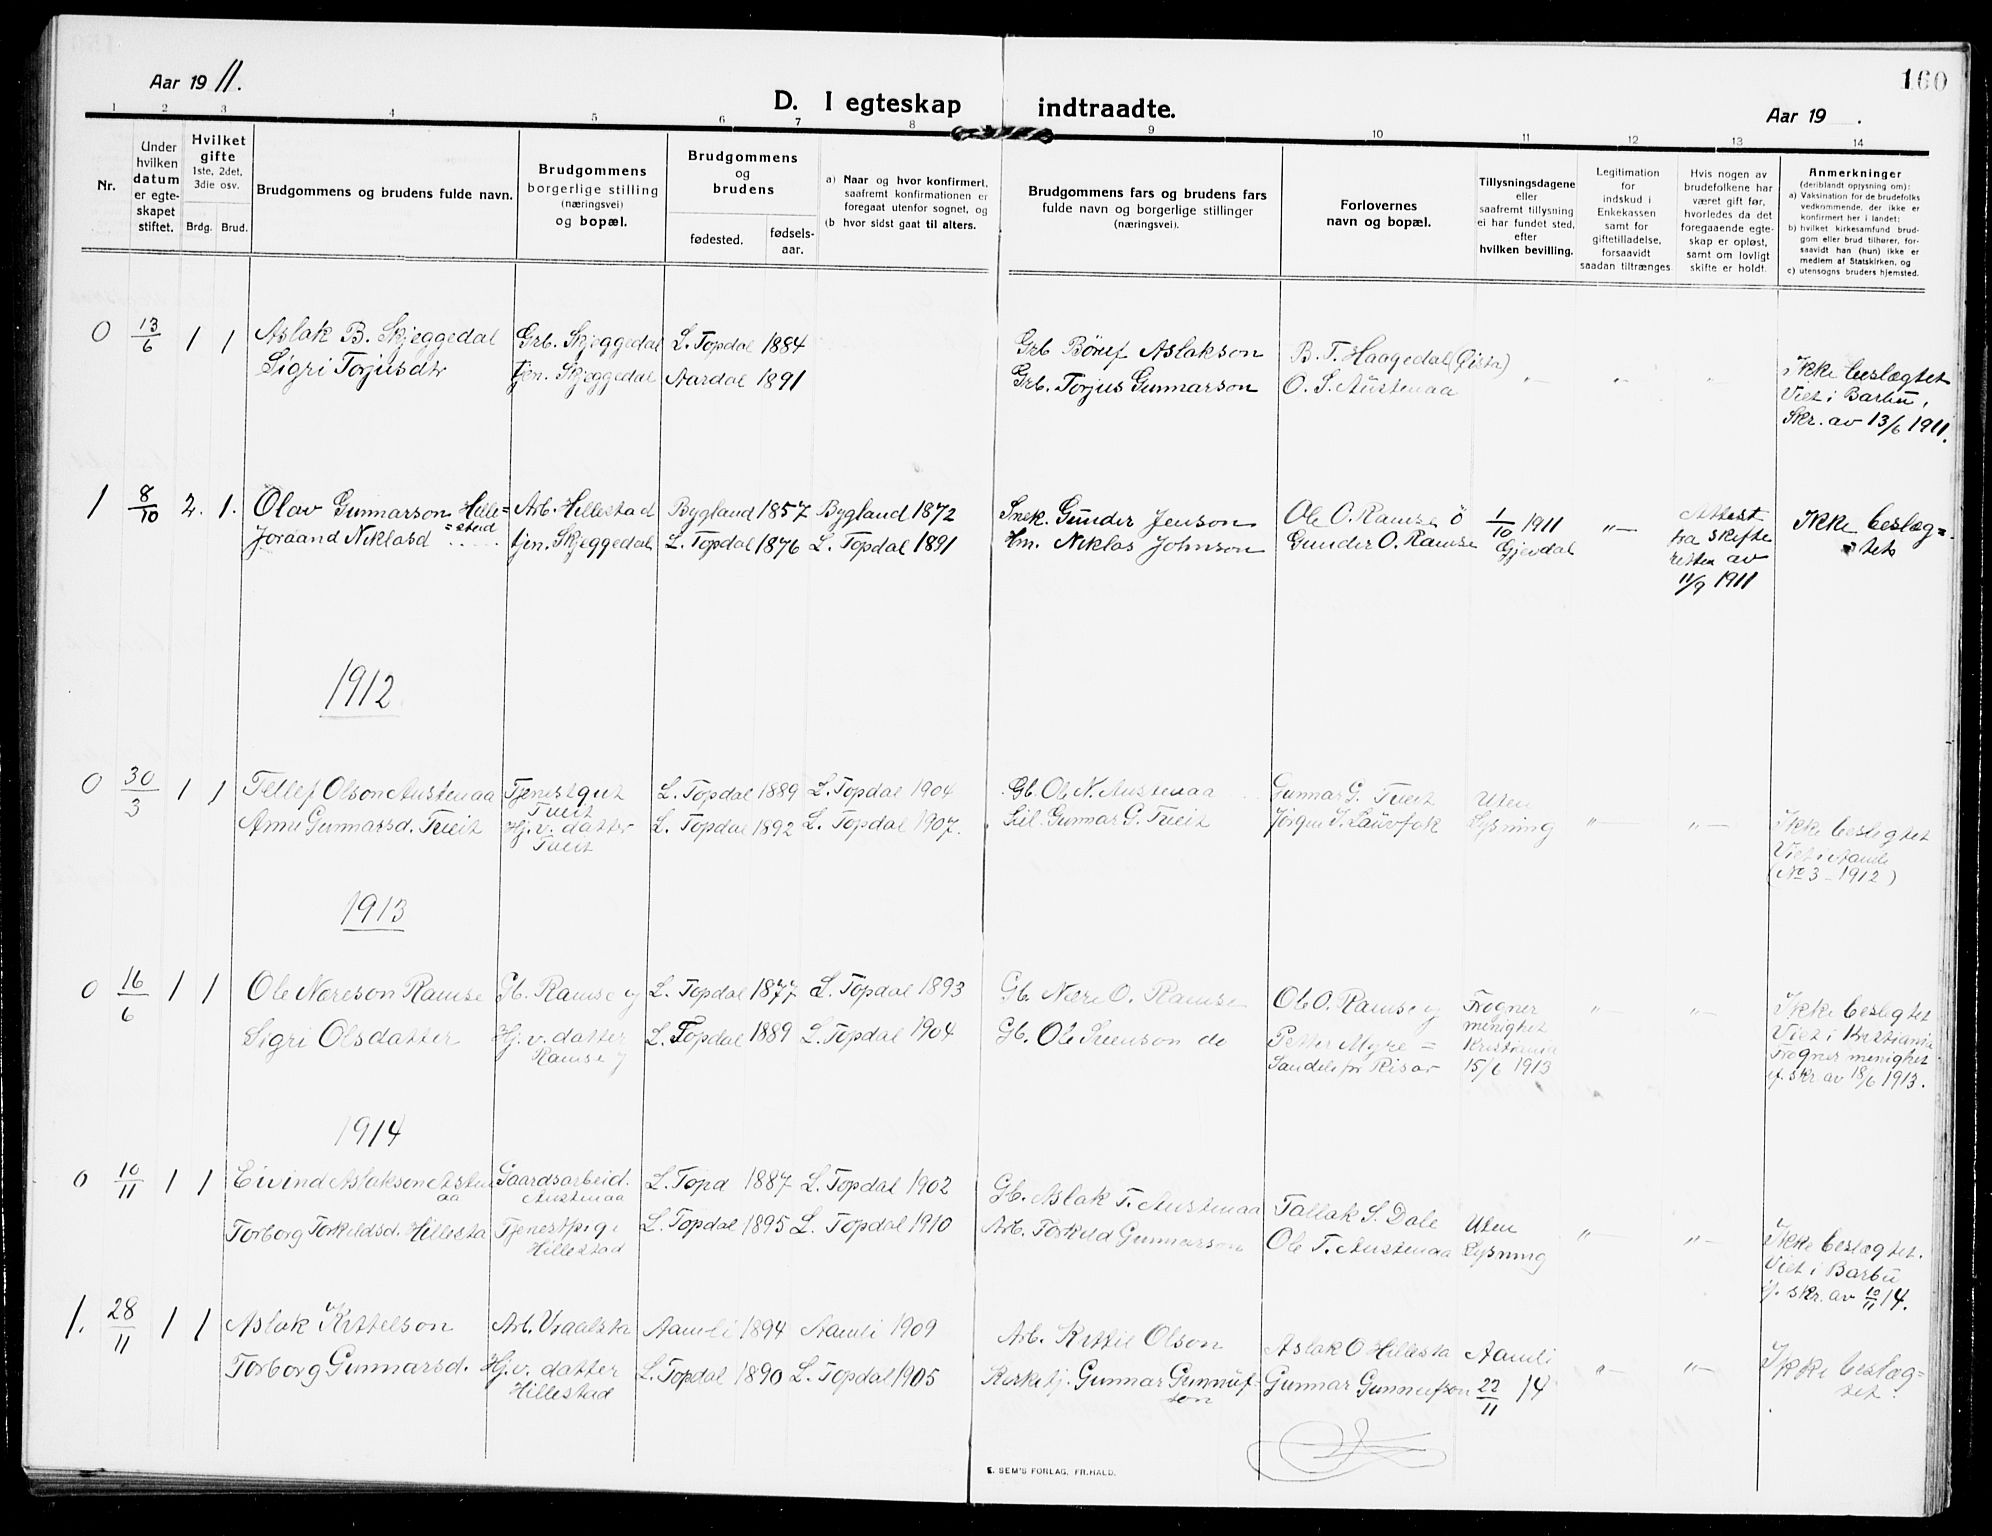 Aar 19 11.
D. I egteskap indtraadte.
Aar 19 .
160
1 2 3 4 5 6 7 8 9 10 11 12 13 14
Nr.
Under
hvilken
datum
er egte-
skapet
stiftet.
Hvilket
gifte
1ste, 2det,
3die osv.
Brdg. Brud.
Brudgommens og brudens fulde navn.
Brudgommens
borgerlige stilling
(næringsvei)
og bopæl.
Brudgommens
og
brudens
fødested.
fødsels-
aar.
a) Naar og hvor konfirmert,
saafremt konfirmationen er
foregaat utenfor sognet, og
(b hvor sidst gaat til alters.
Brudgommens fars og brudens fars
fulde navn og borgerlige stillinger
(næringsvei).
Forlovernes
navn og bopæl.
Tillysningsdagene
eller
saafremt tillysning
ei har fundet sted,
efter
hvilken bevilling.
Legitimation
for
indskud i
Enkekassen
samt for
giftetilladelse,
forsaavidt
saadan tiltrænges
Hvis nogen av
brudefolkene har
været gift før,
hvorledes da det
foregaaende egte-
skap er opløst,
samt om lovligt
skifte er holdt.
Anmerkninger
(deriblandt opjysning om):
a) Vaksination for de brudefolks
vedkommende, der ikke er
konfirmert her i landet;
b) hvilket kirkesamfund brud-
gom eller brud tilhører, for-
saavidt han (hun) ikke er
medlem af Statskirken, og
c) utensogns bruders hjemsted.
0 13/6 1 1 Aslak B. Skjeggedal Grb. Skjeggedal L. Topdal 1884 Grb Børuf Aslakson B. T. Haagedal (Gjsta)
Sigri Torjusdtr tjen. Skjeggedal Aardal 1891 Grb. Torjus Gunnarson O. S. Austenaa " " " Ikke beslægtet
Viet i Barbu,
Skr. av 13/6 1911.
1 8/10 2. 1. Olav Gunnarson Hille= Arb. Hillestad Bygland 1857 Bygland 1872 Snek. Gunder Jenson Ole O. Ramse ö 1/10 1911 "— Attest Ikke beslæg=
=stad
Joraand Niklasd tjen. Skjeggedal L. Topdal 1876 L. Topdal 1891 Hm. Niklas Johnson Gunder O. Ramse Gjevdal fra skifte tet
retten av
11/9 1911
1912
0 30/3 1 1 Tellef Olson Austenaa Tjenestgut L. Topdal 1889 L. Topdal 1904 Gb. Ole N. Austenaa Gunnar G. Tveit Uten
Tveit
Anne Gunnarsd. Tveit Hj. v. datter L. Topdal 1892 L. Topdal 1907. Sel. Gunnar G. Tveit Jørgen J. Lauvfok Lysning "— "— Ikke beslegtet
Tveit Viet i Aamli
(No 3 - 1912)
1913
0 16/6 1 1 Ole Nereson Ramse Gb. Ramse y L. Topdal 1877 L. Topdal 1893 Gb. Nere O. Ramse Ole O. Ramse y Frogner "— "— Ikke beslegtet
menighet Viet i Kristiania
Sigri Olsdatter Hj. v. datter L. Topdal 1889 L. Topdal 1904 Gb. Ole Svenson do Petter Myre = Kristiania Frogner menighet
Ramse y Sandele pr Risør 15/6 1913 if. skr. av 18/6 1913.
1914
0 10/11 1 1 Eivind Aslakson Asten Gaardsarbeid. L. Topd 1887 L. Topdal 1902 Gb. Aslak T. Austenaa Tallak S. Dale Uten
aa Austenaa
Torborg Torkeldsd. Hillesta Tjenestpige L. Topdal 1895 L. Topdal 1910 Arb. Torkeld Gunnarson Ole T. Austenaa Lysning "— "— Ikke beslægtet.
Hillestad Viet i Barbu
if. skr. av 10/11 14.
1. 28/11 1 1 Aslak Kittelson Arb. Vraalsta Aamli 1894 Aamli 1909 Arb. Kittil Olson Aslak O Hillesta Aamli
Torborg Gunnarsd. Hj. v. datter L. Topdal 1890 L. Topdal 1905 Kirketj. Gunnar Gunnuf= Gunnar Gunnufson 22/11 14 "— "— Ikke beslæg=
Hillestad son tet.
E. SEM'S FORLAG, FR.HALD.